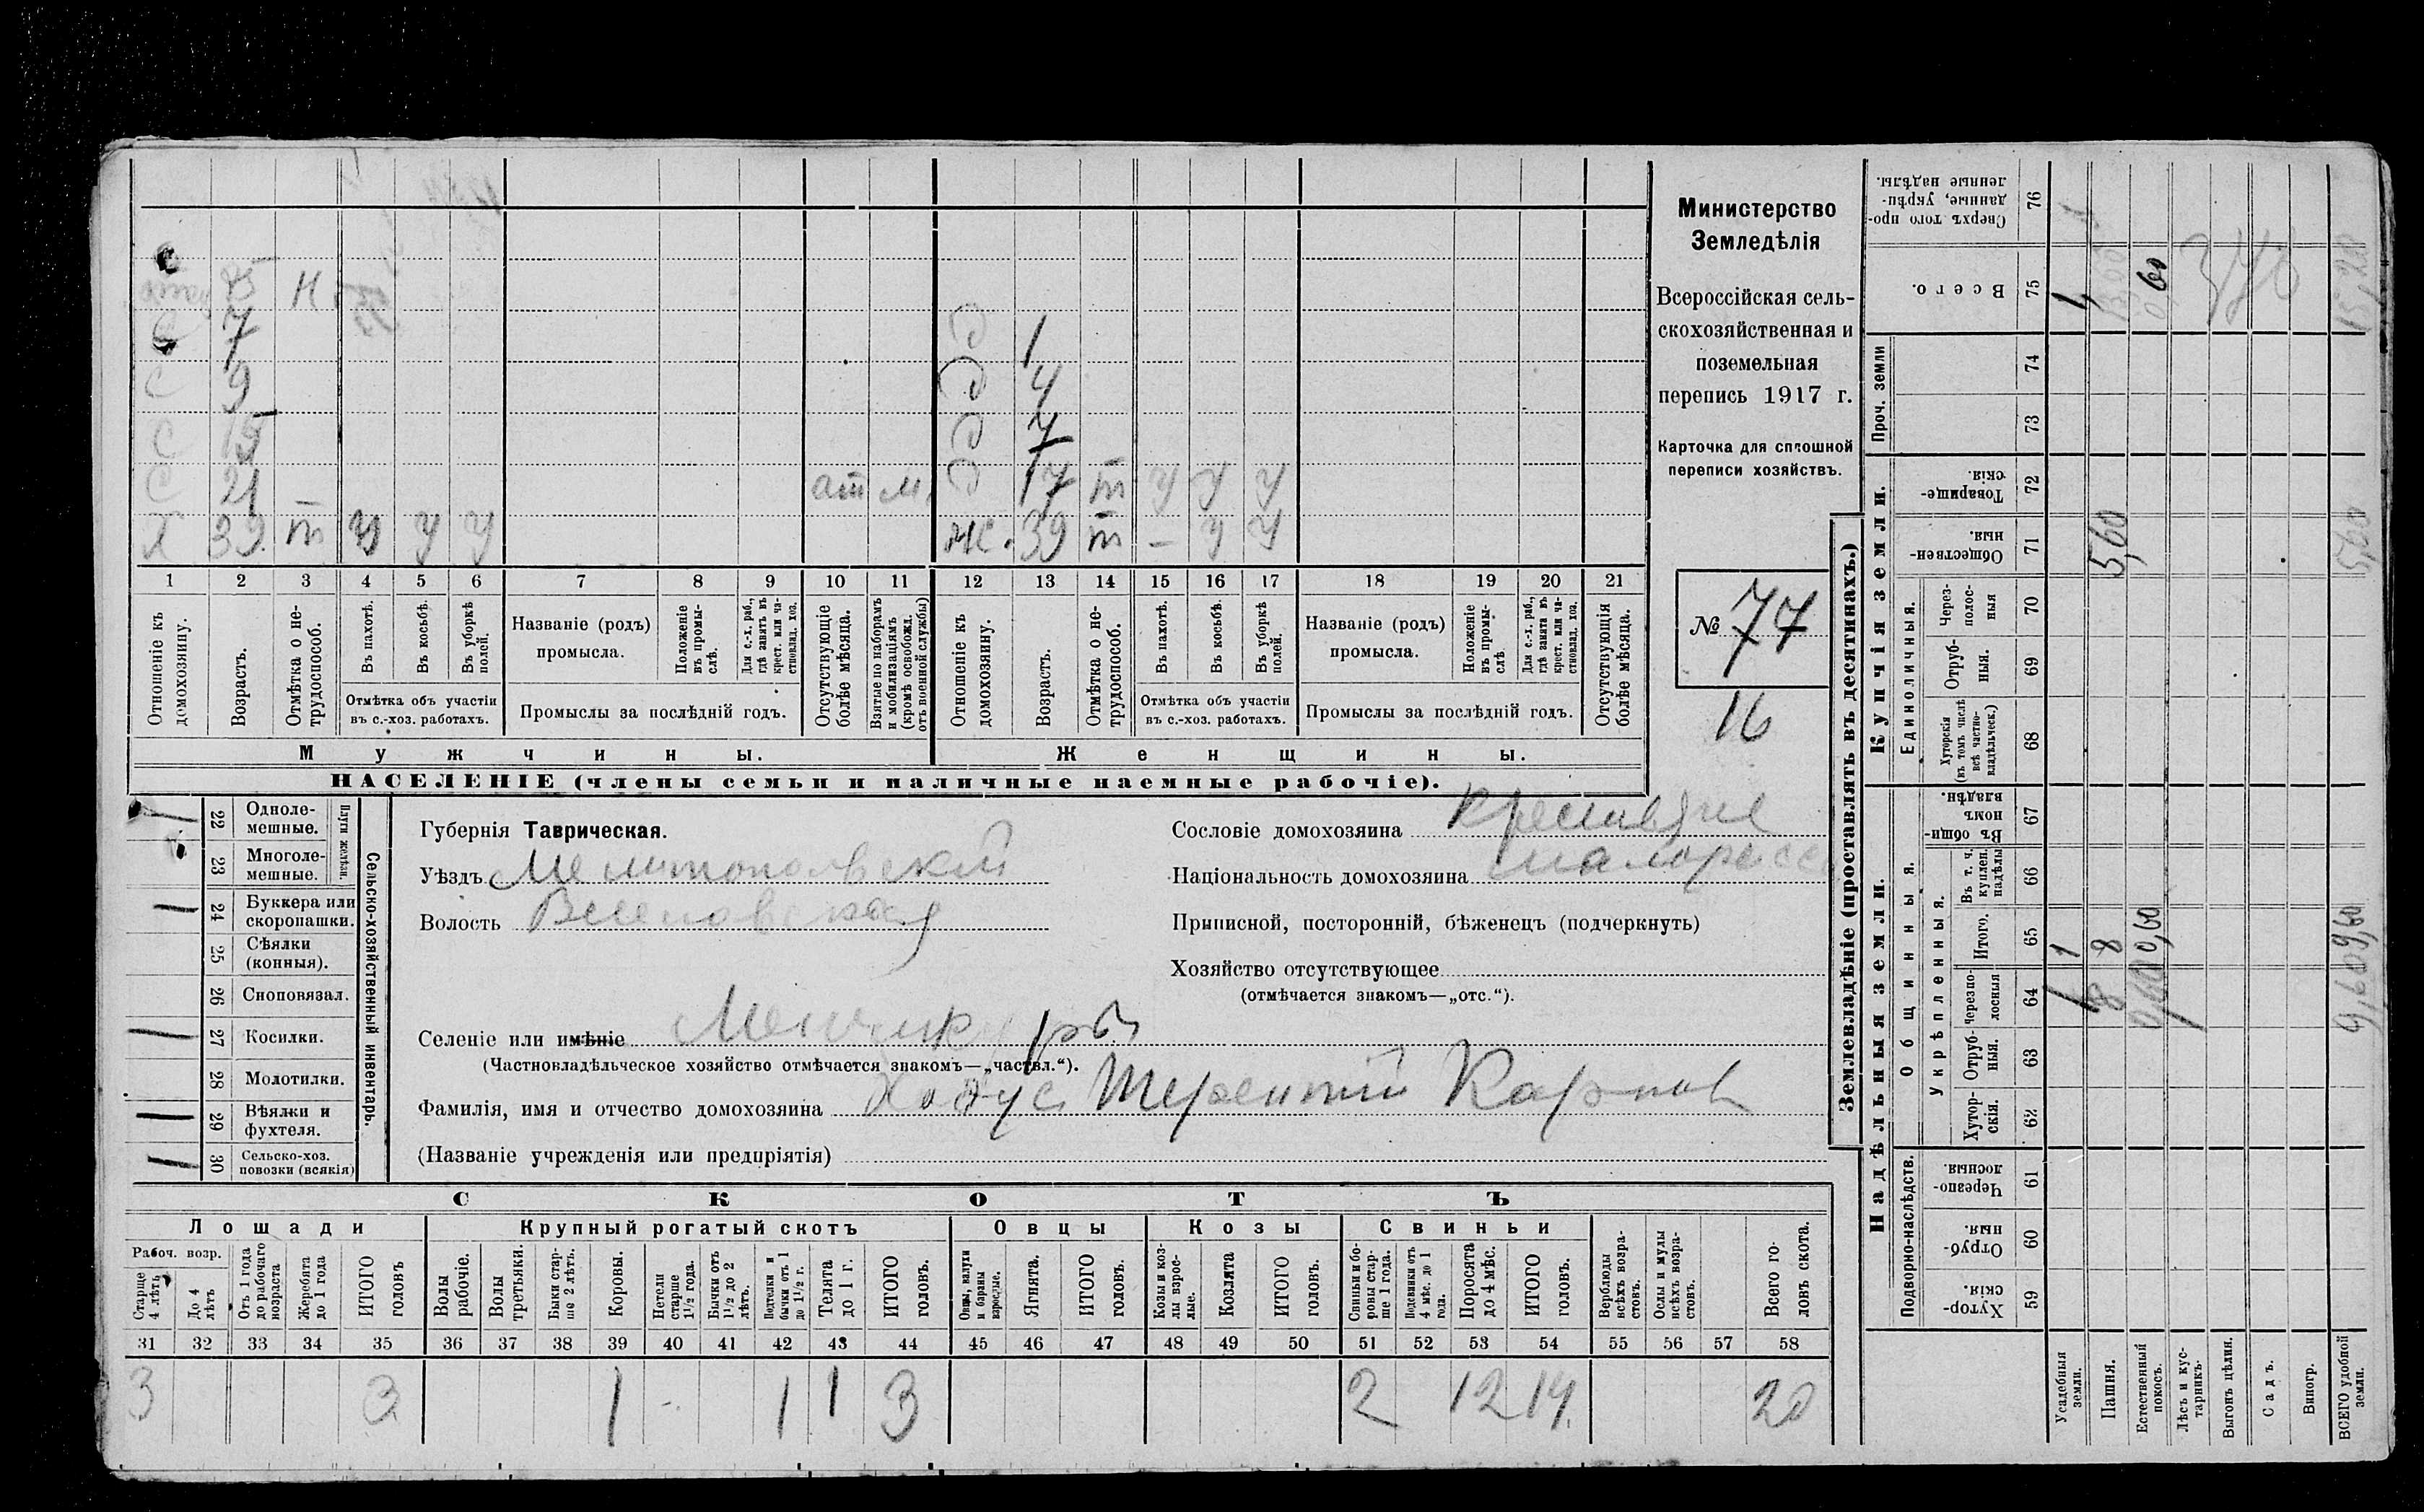 Министерство
Земледѣлія
Всероссійская сель-
скохозяйственная и
поземельная
перепись 1917 г.
Карточка для сплошной
переписи хозяйствъ.
№ 77
16
75 Н
С 7 Д 1
С 9 Д 4
С 15 Д 7
С 21 – от м. Д 17 т У У У
Х 39 т У У У Ж. 39 т – У У
1 2 3 4 5 6 7 8 9 10 11 12 13 14 15 16 17 18 19 20 21
Отношеніе къ домохозяину.
Возрастъ.
Отмѣтка о не-трудоспособ.
Въ пахотѣ.
Въ косьбѣ.
Въ уборкѣ полей.
Отмѣтка объ участіи
въ с.-хоз. работахъ.
Названіе (родъ)
промысла.
Положеніе въ промы-слѣ.
Для с.-х. раб., гдѣ занятъ въ крест. или ча-стновлад. хоз.
Промыслы за послѣдній годъ.
Отсутствующіе болѣе мѣсяца.
Взятые по наборамъ и мобилизаціямъ (кромѣ освобожд. отъ военной службы)
Отношеніе къ домохозяину.
Возрастъ.
Отмѣтка о не-трудоспособ.
Въ пахотѣ.
Въ косьбѣ.
Въ уборкѣ полей.
Отмѣтка объ участіи
въ с.-хоз. работахъ.
Названіе (родъ)
промысла.
Положеніе въ промы-слѣ.
Для с.-х. раб., гдѣ занята въ крест. или ча-стновлад. хоз.
Промыслы за послѣдній годъ.
Отсутствующія болѣе мѣсяца.
Мужчины. Женщины.
НАСЕЛЕНІЕ (члены семьи и наличные наемные рабочіе).
Сельско-хозяйственный инвентарь.
Плуги желѣзн.
22 Одноле-мешные.
23 Многоле-мешные.
24 Буккера или скоропашки.
25 Сѣялки (конныя).
26 Сноповязал.
27 Косилки.
28 Молотилки.
29 Вѣялки и фухтеля.
30 Сельско-хоз. повозки (всякія)
Губернія Таврическая.
Уѣздъ Мелитопольскій
Волость Веселовская
Селеніе или имѣніе Менчикуры
(Частновладѣльческое хозяйство отмѣчается знакомъ—„частвл.“).
Фамилія, имя и отчество домохозяина Ходус Терентій Карпов
(Названіе учрежденія или предпріятія)
Сословіе домохозяина Крестьяне
Національность домохозяина малоросс
Приписной, посторонній, бѣженецъ (подчеркнуть)
Хозяйство отсутствующее
(отмѣчается знакомъ—„отс.“).
СКОТЪ
Лошади Крупный рогатый скотъ Овцы Козы Свиньи
Рабоч. возр.
Старше 4 лѣтъ
До 4 лѣтъ
Отъ 1 года до рабочаго возраста
Жеребята до 1 года
ИТОГО головъ
Волы рабочіе.
Волы третьяки.
Быки стар-ше 2 лѣтъ.
Коровы.
Нетели старше 1½ года.
Бычки отъ 1½ до 2 лѣтъ.
Подтелки и бычки отъ 1 до 1½ г.
Телята до 1 г.
ИТОГО головъ.
Овцы, валухи и бараны взрослые.
Ягнята.
ИТОГО головъ.
Козы и коз-лы взрос-лые.
Козлята
ИТОГО головъ.
Свиньи и бо-ровы стар-ше 1 года.
Подсвинки отъ 4 мѣс. до 1 года.
Поросята до 4 мѣс.
ИТОГО головъ.
Верблюды всѣхъ возра-стовъ.
Ослы и мулы всѣхъ возра-стовъ.
Всего го-ловъ скота.
31 32 33 34 35 36 37 38 39 40 41 42 43 44 45 46 47 48 49 50 51 52 53 54 55 56 57 58
3 3 1 1 1 3 2 12 14 20
Землевладѣніе (проставлять въ десятинахъ.)
Надѣльныя земли. Купчія земли. Проч. земли
Подворно-наслѣдств. Общинныя. Укрѣпленныя. Единоличныя.
Хутор-скія. 59
Отруб-ныя. 60
Черезпо-лосныя. 61
Хутор-скія. 62
Отруб-ныя. 63
Черезпо-лосныя 64
Итого. 65
Въ т. ч. куплен. надѣлы 66
Въ общи-номъ владѣн. 67
Хуторскія (въ томъ числѣ всѣ частно-владѣльческ.) 68
Отруб-ныя. 69
Через-полос-ныя 70
Обществен-ныя. 71
Товарище-скія. 72
73
74
Всего. 75
Сверхъ того про-данные, укрѣп-ленные надѣлы. 76
Усадебныя земли. 1 1
Пашня. 8 8 5,60
Естественный покосъ. 0,60 0,60
Лѣсъ и кус-тарникъ.
Выгонъ цѣлин.
Садъ.
Виногр.
ВСЕГО удобной земли. 9,60 9,60 5,60 15,20